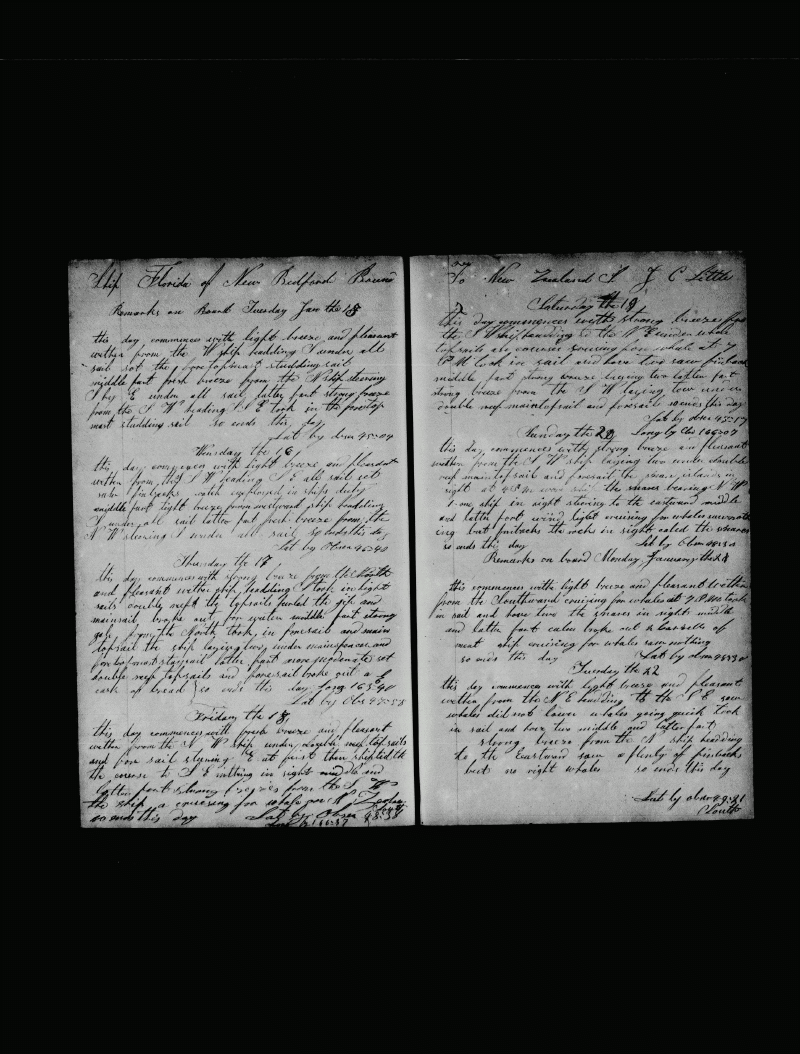 Ship Florida of New Bedford Bound
Remarks on Board Tuesday Jan the 15
this day commences with light breeze and pleasant
wether from the W ship heading S under all
sail set the foretopmast studding sail
middle part fresh breeze from the N ship steering
S by E under all sail latter part strong breeze
from the S W heading S E took in the foretop
mast studding sail so ends this day
Lat by obser 45=04
Wensday the 16
this day commences with light breeze and pleasant
wether from the S W heading S E all sail set
saw finbacks watch employed in ships duty
middle part light breeze from westward ship heading
S under all sail latter part fresh breeze from the
N W steering S under all sail so ends this day
Lat by Obser 45=40
Thursday the 17
this day commences with strong breeze from the North
and pleasant wether ship heading S took in light
sails double reeft the topsails furled the jib and
mainsail broke out for water middle part strong
gale from the North took in foresail and main
topsail the ship laying two under mainspencer and
foretopmast staysail latter part more moderate set
double reef topsails and foresail broke out a
cask of bread so ends this day Long 165=40
Lat by Obs 47=58
Friday the 18
this day commences with fresh breeze and pleasant
wether from the N W ship under double reef topsails
and fore sail stering E at first then shifted the
the course to S E nothing in sight middle and
latter part strong breezes from the S W
the ship a cruising for whale
so ends this day Lat by Obser 48=38

To New Zealand J C Little
Saturday the 19
this day commences with strong breeze from
the S W ship heading to the N E under whole
topsails and courses
P M took in sail and hove two saw finback
middle part strong breeze laying two latter part
strong breeze from the S W laying two under
double reef maintopsail and foresail so ends this day
Lat by obser 48=17
Sunday the 20 Long by Chr 166=07
this day commences with strong breeze and pleasant
wether from the S W ship laying two under double
reef maintopsail and foresail the snares islands in
sight at 4 P M wore ship the snares bearing N W
1 one ship in sight stering to the eastward middle
and latter part wind light cruising for whales saw noth
ing but finbacks the rocks in sight called the snares
so ends this day Lat by Obser 48=30
Remarks on board Monday January the 21
this commences with light breeze and pleasant wether
from the Southward cruising for whales at 7 P M took
in sail and hove two the snares in sight middle
and latter part calm broke out 2 barsells of
meat ship cruising for whales saw nothing
so ends this day Lat by obser 48=30
Tuesday the 22
this day commences with light breeze and pleasant
wether from the N E heading to the S E saw
whales did not lower whales going quick took
in sail and hove two middle and latter part
strong breeze from the N ship heading
to the Eastward saw a plenty of finbacks
but no right whales so ends this day
Lat by obser 49=21
South